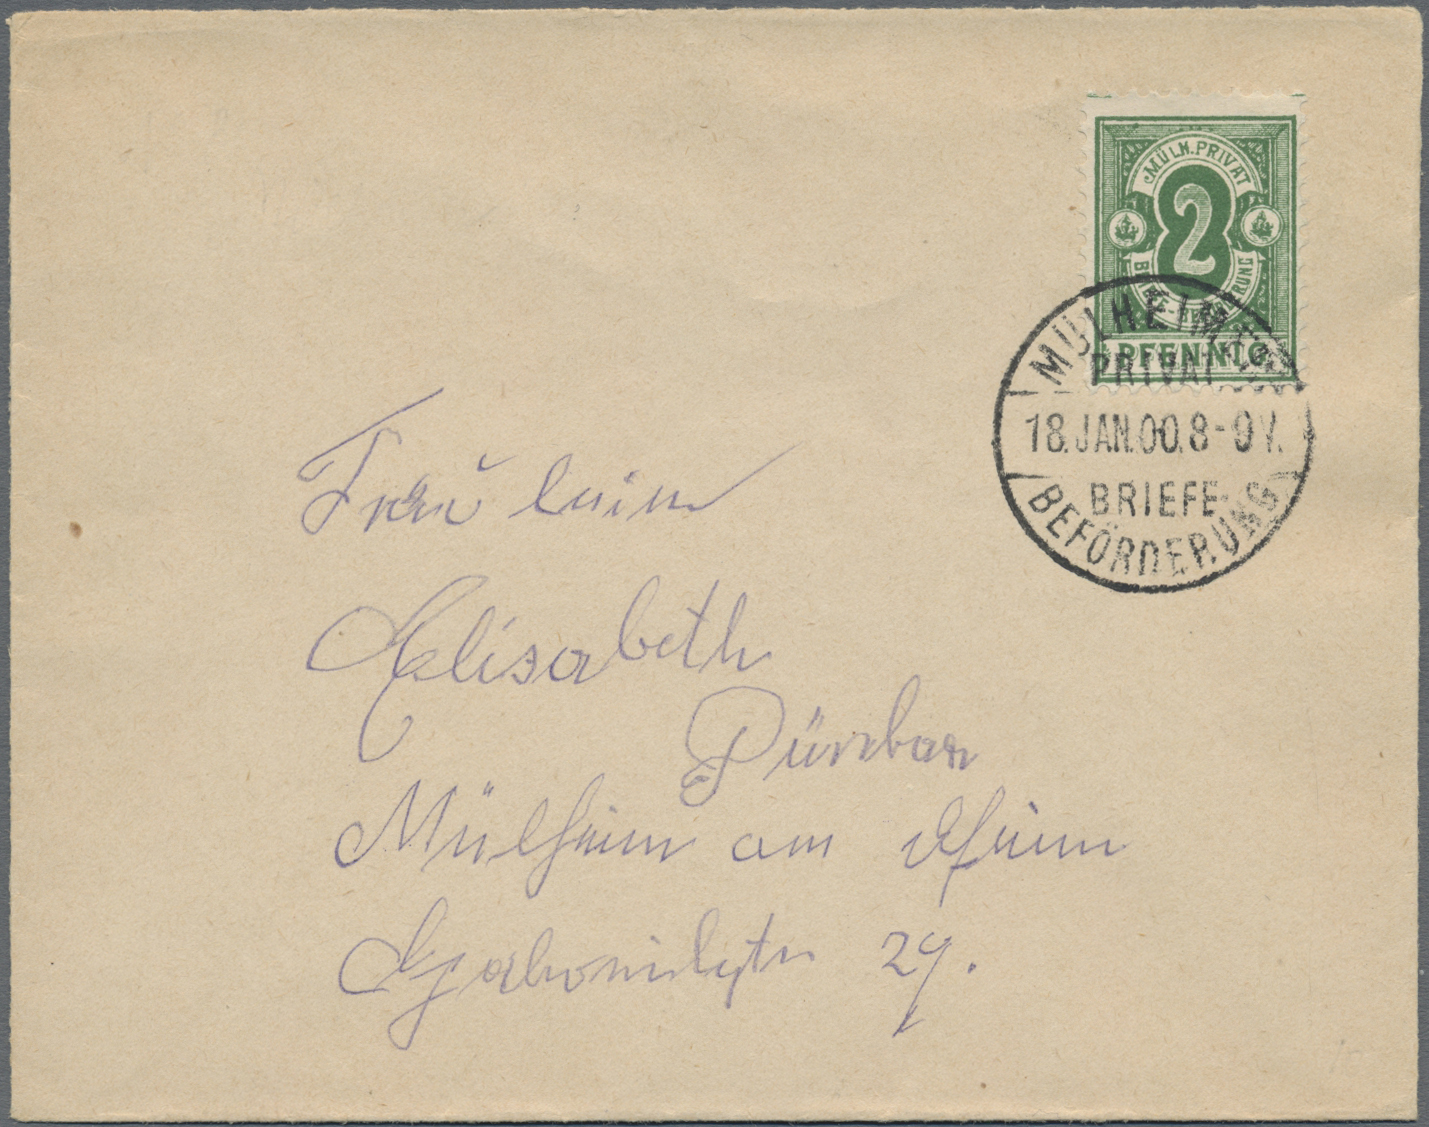 MÜLH. PRIVAT
2
BRIEFE-BEFÖRDERUNG
PFENNIG
MÜLHEIM
PRIVAT
18.JAN.00.8-9V.
BRIEFE-
BEFÖRDERUNG
Fräulein
Elisabeth
Mülheim am Rhein
29.